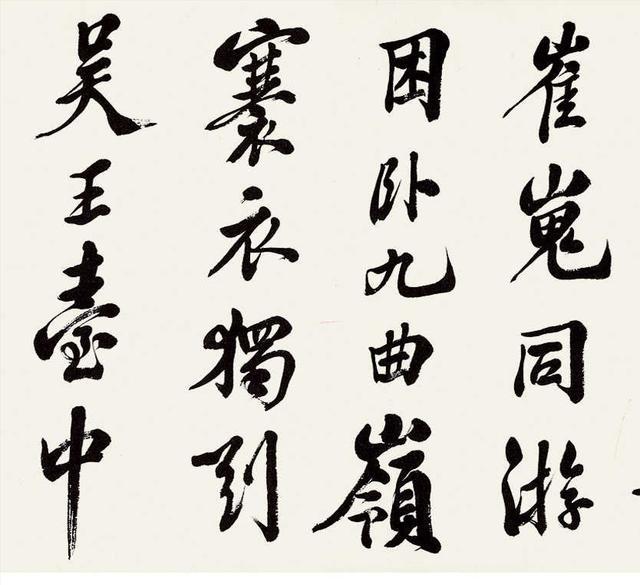 崔嵬同游
困卧九曲嶺
褰衣獨到
吴王臺中